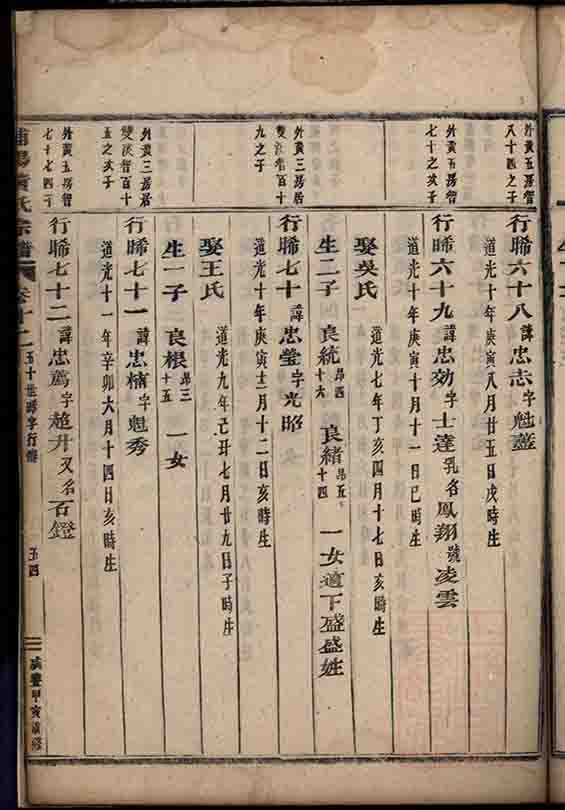 外黃五房智
八十四之子
行晞六十八諱忠志字魁
道光十年庚寅八月廿五日戌時生
外黃五房智
七十之次子
行晞六十九諱忠効字士達乳名鳳翔號凌雲
道光十年庚寅十月十一日巳時生
娶吳氏
道光七年丁亥四月十七日亥時生
生二子 良統昴四十六 良緒昴五十四 一女適下盛盛姓
外黃三房居
雙溪智百十
九之子
行晞七十諱忠瑩字光昭
道光十年庚寅十二月十二日亥時生
娶王氏
道光九年己丑七月廿九日子時生
生一子 良根昴三十五 一女
外黃三房居
雙溪智百十
五之次子
行晞七十一諱忠楠字魁秀
道光十一年辛卯六月十四日亥時生
外黃五房智
七十七四子
行晞七十二諱忠薦字趙升又名石鐙
浦陽黃氏宗譜 卷十二 五十世晞字行傳 五四 咸豐甲寅重修